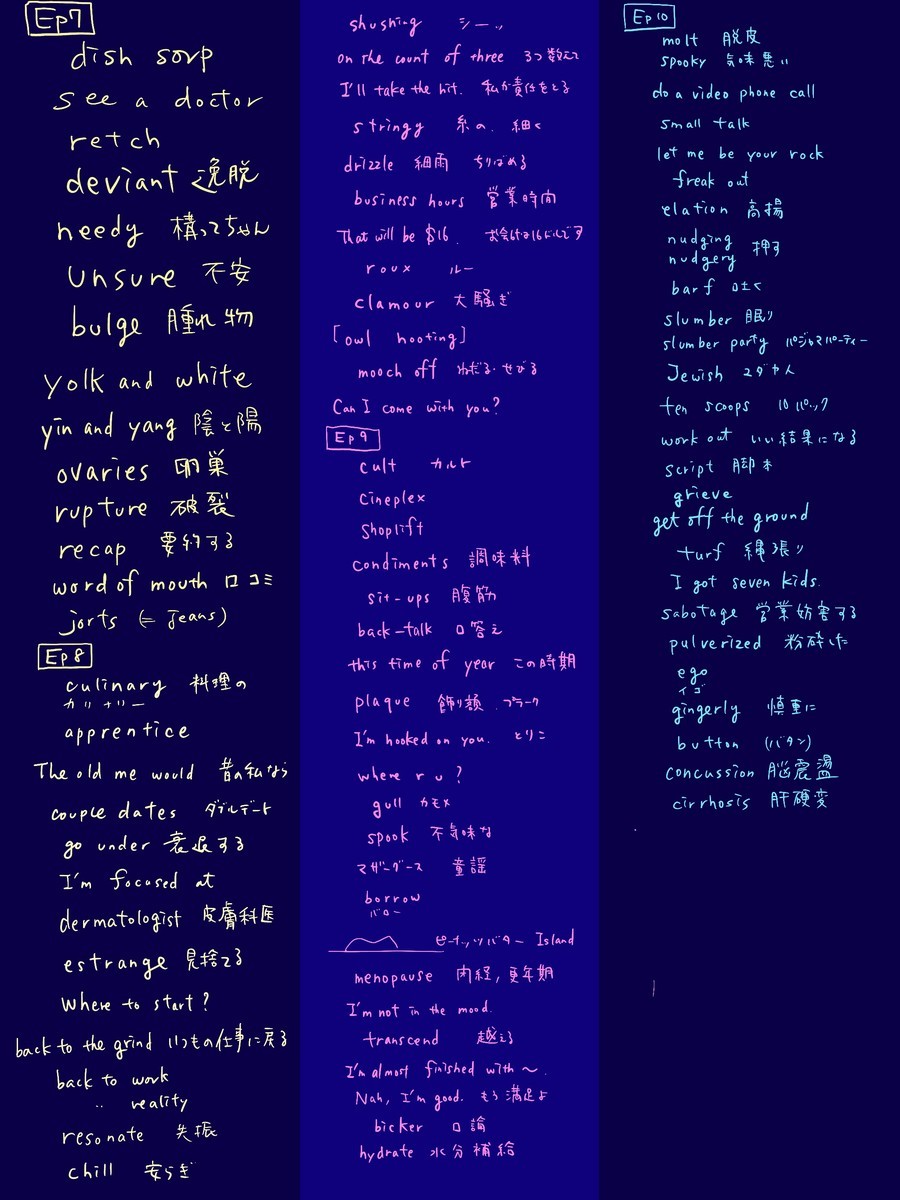 Ep7
dish sorp
see a doctor
retch
deviant 逸脱
needy 構ってちゃん
unsure 不安
bulge 腫れ物
yolk and white
yin and yang 陰と陽
ovaries 卵巣
rupture 破裂
recap 要約する
word of mouth 口コミ
jorts (= jeans)
Ep8
culinary 料理の
カリナリー
apprentice
The old me would 昔の私なら
couple dates ダブルデート
go under 衰退する
I'm focused at
dermatologist 皮膚科医
estrange 見捨てる
Where to start?
back to the grind いつもの仕事に戻る
back to work
〃 reality
resonate 共振
chill 安らぎ
shushing シーッ
on the count of three 3つ数えて
I'll take the hit. 私が責任をとる
stringy 糸の、細く
drizzle 細雨 ちりばめる
business hours 営業時間
That will be $16. お会計は16ドルです
roux ルー
clamour 大騒ぎ
[owl hooting]
mooch off ねだる・せびる
Can I come with you?
Ep9
cult カルト
Cineplex
Shoplift
condiments 調味料
sit-ups 腹筋
back-talk 口答え
this time of year この時期
plaque 飾り額、プラーク
I'm hooked on you. とりこ
where r u?
gull カモメ
spook 不気味な
マザーグース 童謡
borrow
バロー
ピーナッツバター Island
menopause 閉経, 更年期
I'm not in the mood.
transcend 越える
I'm almost finished with ~.
Nah, I'm good. もう満足よ
bicker 口論
hydrate 水分補給
Ep10
molt 脱皮
spooky 気味悪い
do a video phone call
small talk
let me be your rock
freak out
elation 高揚
nudging
nudgery 押す
barf 吐く
slumber 眠り
slumber party パジャマパーティー
Jewish ユダヤ人
ten scoops 10パック
work out いい結果になる
script 脚本
grieve
get off the ground
turf 縄張り
I got seven kids.
sabotage 営業妨害する
pulverized 粉砕した
ego
イゴ
gingerly 慎重に
button (バタン)
concussion 脳震盪
cirrhosis 肝硬変